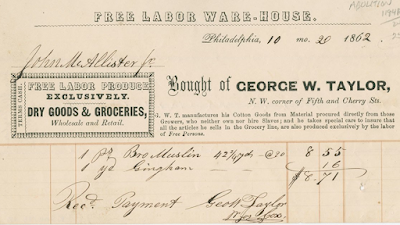 ABOLITION
FREE LABOR WARE-HOUSE.
Philadelphia, 10 mo. 20 1862.
John McAllister Jr
TERMS CASH.
FREE LABOR PRODUCE
EXCLUSIVELY.
DRY GOODS & GROCERIES,
Wholesale and Retail.
Bought of GEORGE W. TAYLOR,
N. W. corner of Fifth and Cherry Sts.
G. W. T. manufactures his Cotton Goods from Material procured directly from those
Growers, who neither own nor hire Slaves; and he takes special care to insure that
all the articles he sells in the Grocery line, are also produced exclusively by the labor
of Free Persons.
1 Bro Muslin 42 yds @20 8 55
1 yd Gingham 16
$8.71
Recd. Payment Geo W Taylor